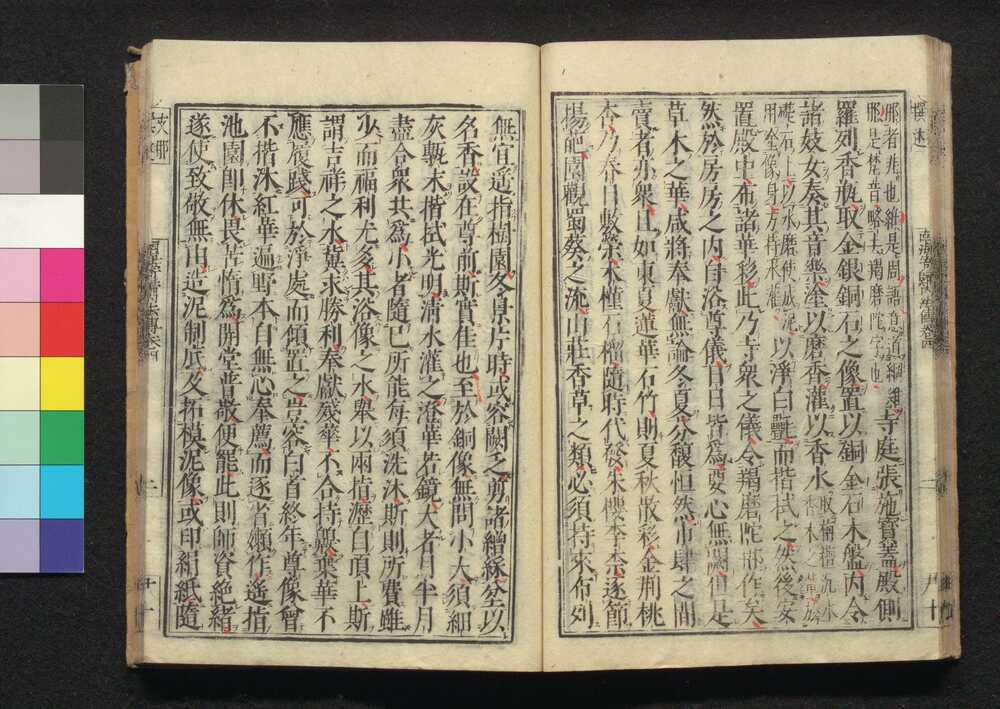 那者非也維是周語意道綱維
那是梵音略去羯磨陀字也
寺庭張施寶蓋殿側
羅列香瓶取金銀銅石之像置以銅金石木盤內令
諸妓女奏其音樂塗以磨香灌以香水
以淨白㲲而揩拭之然後安
置殿中布諸華彩此乃寺衆之儀令羯磨陀那作矣
然於房房之內自浴尊儀日日皆爲要心無闕但是
草木之華咸將奉獻無論冬夏芬馥恒然市肆之間
賣者亦衆且如東夏蓮華石竹則夏秋散彩金荊桃
杏乃春日敷榮木槿石榴隨時代發朱櫻素柰逐節
揚葩園觀蜀葵之流山莊香草之類必須持來布列
無宜遙指樹園冬景片時或容闕乏剪諸繒綵坌以
名香設在尊前斯實佳也至於銅像無問小大須細
灰甎末揩拭光明清水灌之澄華若鏡大者月半月
盡合衆共爲小者隨己所能每須洗沐斯則所費雖
少而福利尤多其浴像之水舉以兩指瀝自頂上斯
謂吉祥之水冀求勝利奉獻殘華不合持嗅棄華不
應履踐可於淨處而傾置之豈容白首終年尊像曾
不揩沐紅華遍野本自無心奉薦而遂省嬾作遙指
池園即休畏苦惰爲開堂普敬便罷此則師資絕緒
遂使致敬無由造泥制底及拓模泥像或印絹紙隨